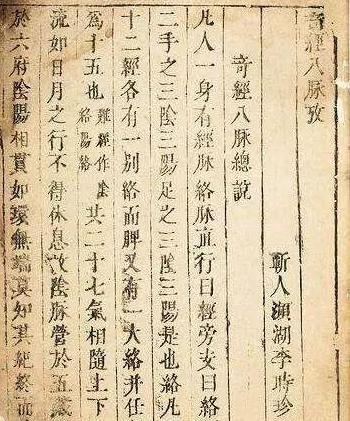 奇經八脉攷
蘄人瀕湖李時珍
奇經八脉總說
凡人一身有經脉絡脉直行曰經旁支曰絡
二手之三陰三陽足之三陰三陽是也絡凡
十二經各有一別絡而脾又有一大絡并任
爲十五也難經作陰絡陽絡其二十七氣相隨上下
流如日月之行不得休息故陰脉營於五藏
於六府陰陽相貫如環無端莫知其紀終而